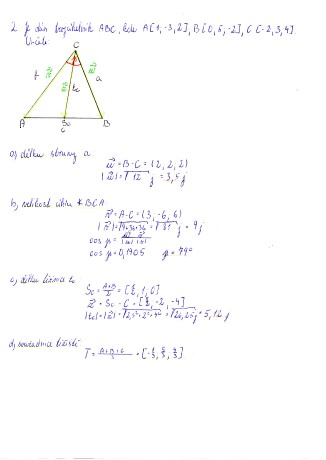 2. Je dán trojúhelník ABC, kde A[1,-3,2], B[0,5,-2], C[-2,3,4].
Určete:
C
a
tc
A
Sc
B
c
a) délku strany a
u = B - C = (2, 2, 2)
|u| = √12 j = 3,5 j
b) velikost úhlu ∢ BCA
v = A - C = (3, -6, 6)
|v| = √9+36+36 = √81 j = 9 j
cos φ =
cos φ = 0,1905 φ = 79°
c) délku těžnice tc
Sc = A+B/2 = [1/2, 1, 0]
z = Sc - C = [5/2, -2, -4]
|tc| = |z| = √2,5²+2²+4² = √26,25 j = 5,12 j
d) souřadnice těžiště
T = A+B+C/3 = [-1/3, 5/3, 4/3]